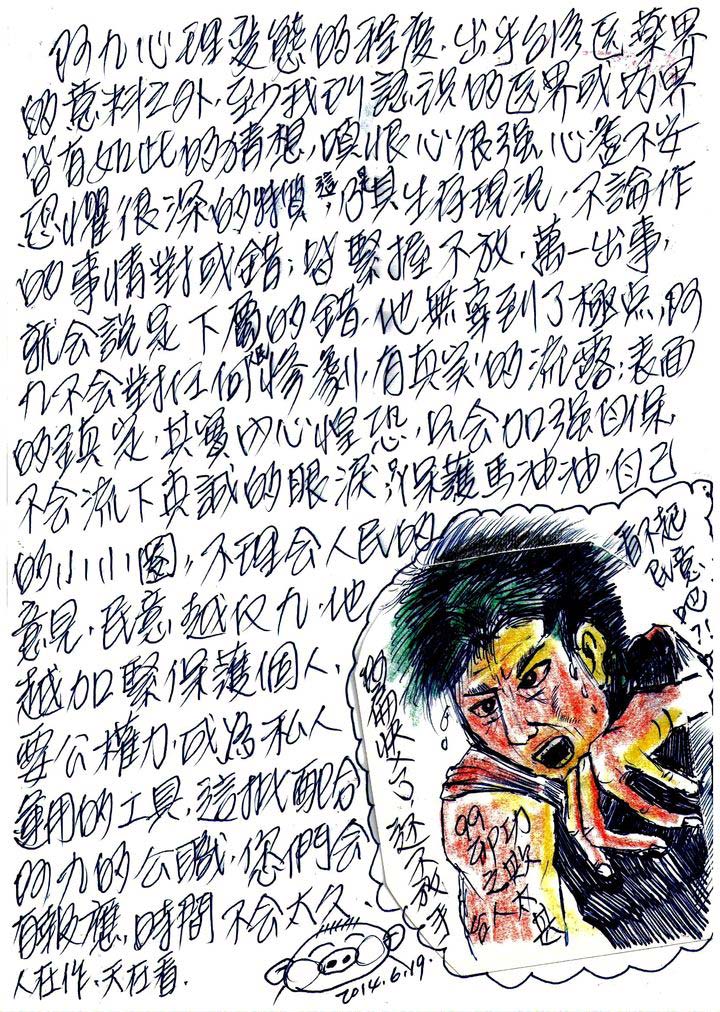 阿九心理变態的程度,出乎台湾医薬界
的意料之外,至少我到認識的医界或药界
皆有如此的猜想,嗔恨心很强,心虚不安
恐懼很深的特質,這是其生存現況,不論作
的事情對或錯;皆緊握不放,萬一出事,
就会說是下屬的錯,他無辜到了極点,阿
九不会對任何慘劇,有真实的流露;表面
的鎮定,其實内心惶恐,只会加强自保,
不会流下真誠的眼淚;保護馬油油自己
的小小圈,不理会人民的
意見,民意越反九,他
越加緊保護個人,
要公權力,或為私人
運用的工具,這批配合
阿九的公職,您們会
有報應,時間不会太久,
人在作,天在看.
看不起
民意
吧?!
还不放手
2014.6.19.